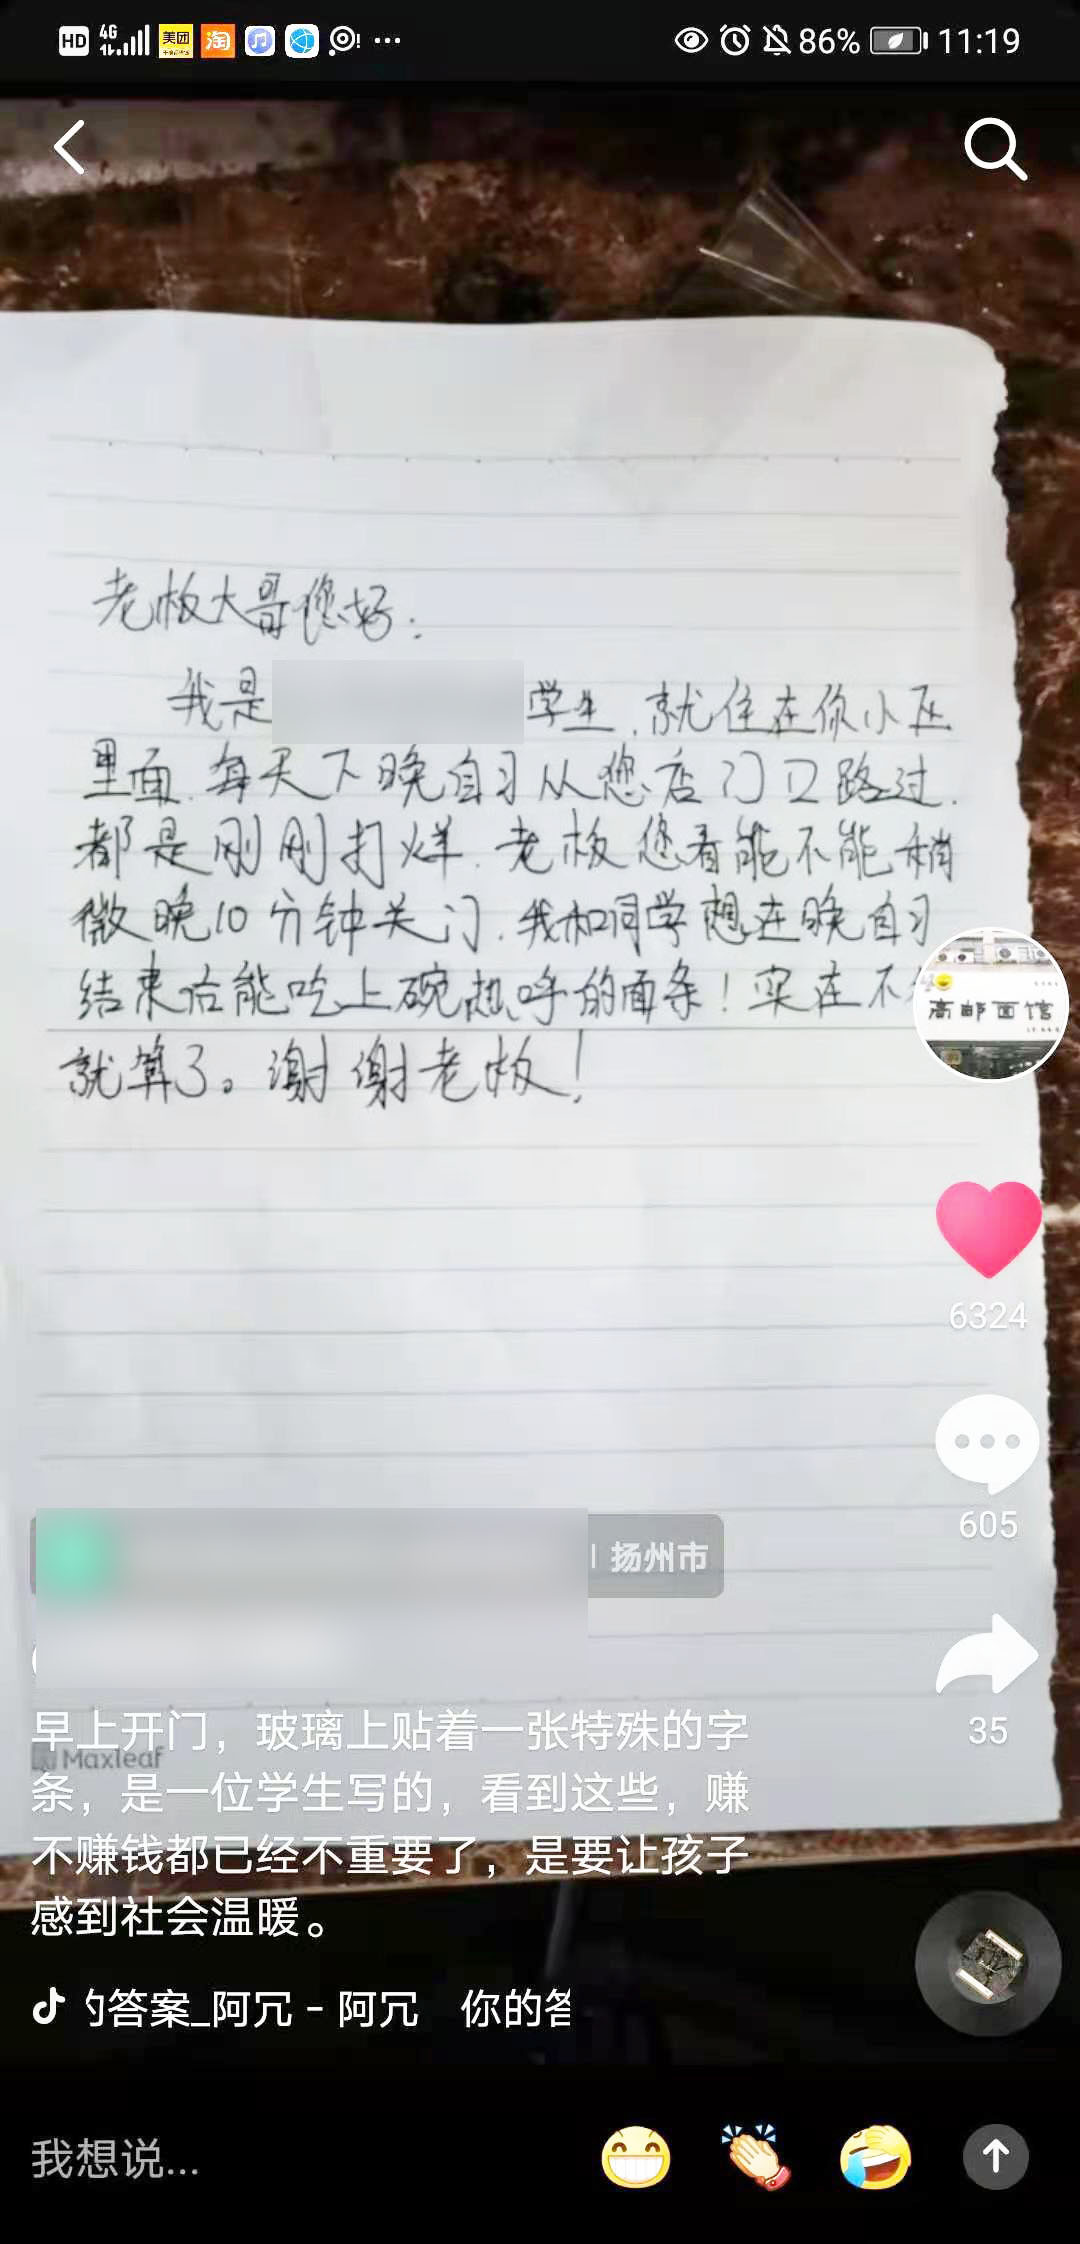 HD 4G 美团 淘 86% 11:19
老板大哥您好:
我是 学生,就住在你小区
里面,每天下晚自习从您店门口路过.
都是刚刚打烊,老板您看能不能稍
微晚10分钟关门,我和同学想在晚自习
结束后能吃上碗热呼的面条!实在不
就算了。谢谢老板!
高邮面馆
6324
605
扬州市
35
Maxleaf
早上开门，玻璃上贴着一张特殊的字
条，是一位学生写的，看到这些，赚
不赚钱都已经不重要了，是要让孩子
感到社会温暖。
的答案_阿冗 - 阿冗 你的答
我想说...